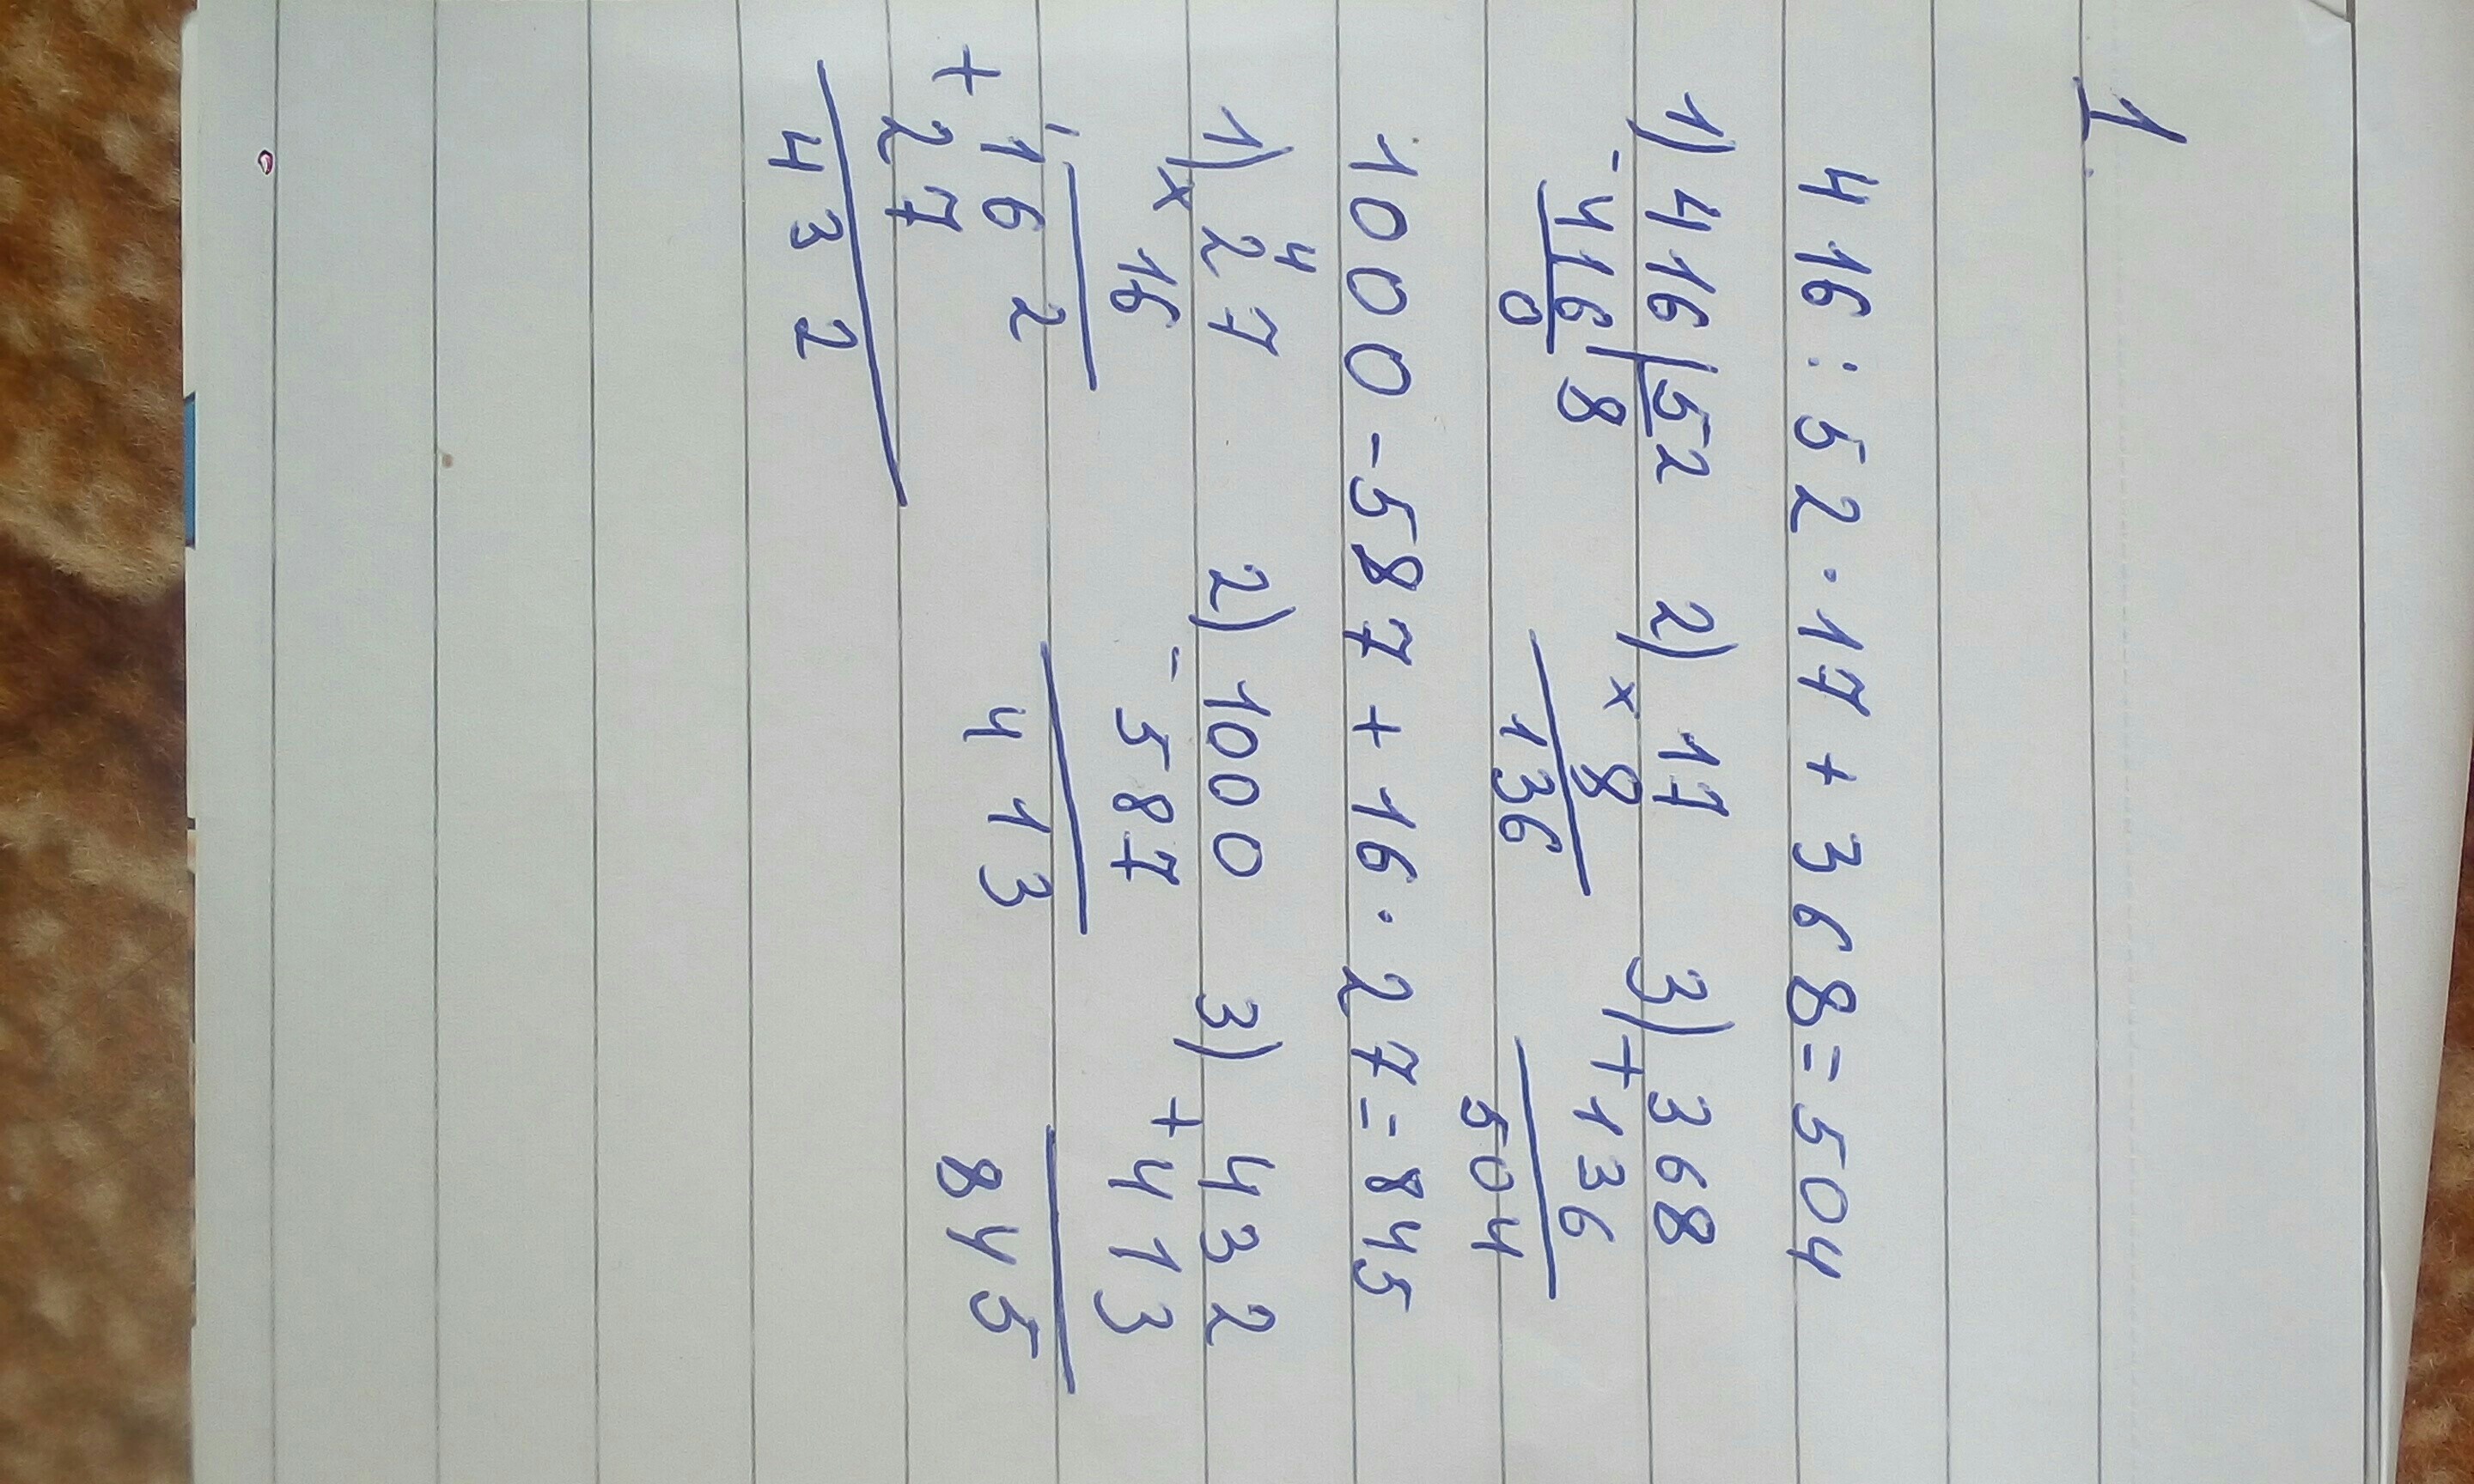 1.
416:52·17+368=504
1) 416|52 2) 17 3) 368
-416 8 × 8 +136
0 136 504
1000-587+16·27=845
4
1) 27 2) 1000 3) 432
×16 -587 +413
1
162 413 845
+27
432